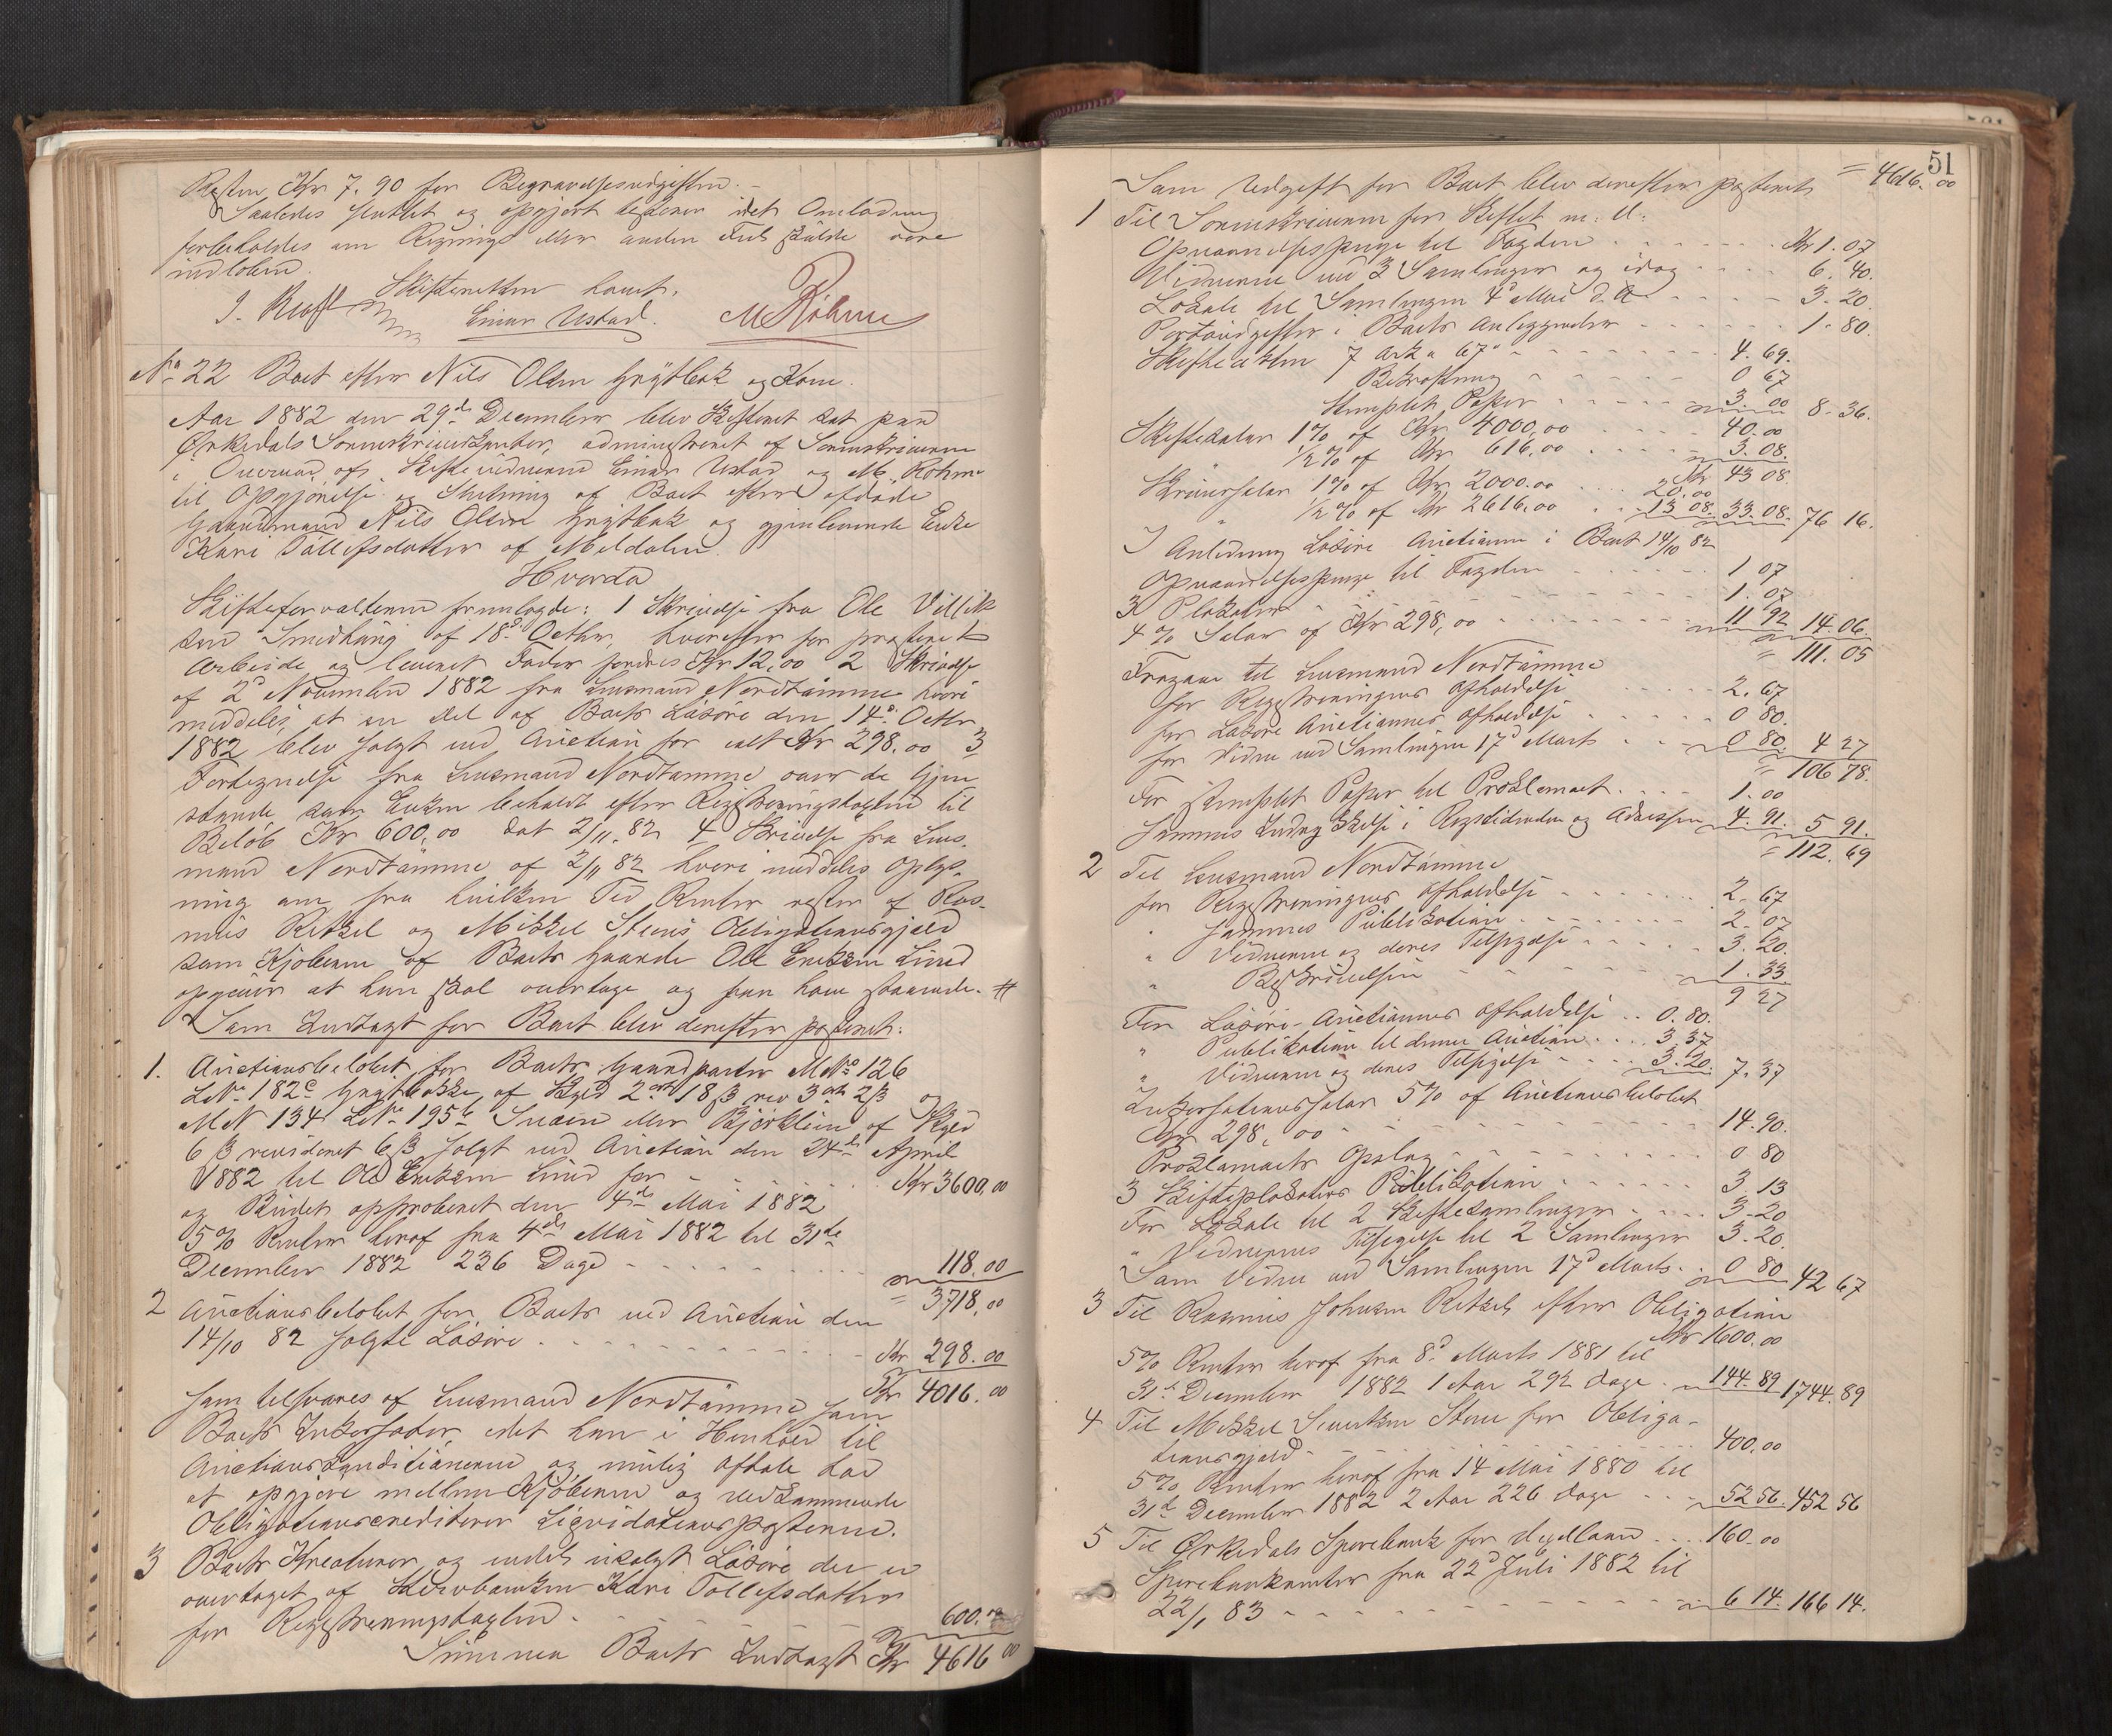 Resten Kr 7.90 for Begravelsesudgifter.
Saaledes sluttet og opgjort
forbeholdes om Regninger eller anden Feil skulde være
indløbet.
Skifteretten hævet.
J. Rust Einar Ustad. M Røhme
No 22 Boet efter Nils Olsen Grytbak og Kone.
Aar 1882 den 29de December blev Skifteret sat paa
Ørkedals Sorenskriverkontor, administreret af Sorenskriveren
i Overvær af Skiftevidnerne Einar Ustad og M. Røhme
til Opgjørelse og Slutning af Boet efter afdøde
Gaardmand Nils Olsen Grytbak og gjenlevende Enke
Kari Tollefsdatter af Meldalen.
Hvorda
Skifteforvalteren fremlagde: 1 Skrivelse fra Ole
sen Smedhaug af 18d Octbr, hvorefter for præsteret
Arbeide og leveret Foder fordres Kr 12,00 2 Skrivelse
af 2d November 1882 fra Lensmand Nordtømme hvori
meddeles, at en Del af Boets Løsøre den 14d Octbr
1882 blev solgt ved Auction for ialt Kr 298.00 3
Fortegnelse fra Lensmand Nordtømme over de Gjen
stande, som Enken beholdt efter Registreringstaxten til
Beløb Kr 600,00 dat 2/11 82 4 Skrivelse fra Lens-
mand Nordtømme af 2/11 82 hvori meddeles Oplys-
ning om fra hvilken Tid Renter rester af Ras-
mus Ritzel og Mikkel Steens Obligationsgjæld
som Kjøberen af Boets Gaarde Ole Eriksen Lund
opgiver at han skal overtage og paa have staaende. #
Som Indtægt for Boet blev derefter posteret:
1. Auctionsbeløbet for Boets Gaardparter M No 126
L No 182c Grytbakke, af Skyld 2 ort 18 β rev 3 ort 2 β og
M N 134 L No 195b Svæen eller Bjørklien af Skyld
6 β revideret 6 β solgt ved Auction den 24de April
1882 til Ole Eriksen Lund for Kr 3600,00
og Budet approberet den 4de Mai 1882
5% Renter heraf fra 4de Mai 1882 til 31te
December 1882 236 Dage 118.00
= 3718,00
2 Auctionsbeløbet for Boets ved Auction den
14/10 82 solgte Løsøre Kr 298.00
Kr 4016.00
som tilsvares af Lensmand Nordtømme som
Boets Inkassator, idet han i Henhold til
Auctionsconditionerne og mulig Aftale har
at opgjøre mellem Kjøberen og vedkommende
Obligationscreditorer Liqvidationsposterne.
3 Boets Kreaturer og endel usolgt Løsøre der er
overtaget af Kari Tollefsdatter
for Registreringstaxten 600.00
Summa Boets Indtægt Kr 4616 00
51
Som Udgift for Boet blev derefter posteret = 4616.00
1 Til Sorenskriveren for Skiftet m. v.
Opnævnelsespenge til Fogden Kr 1.07
Vidnerne ved 3 Samlinger og idag 6.40.
Lokale til Samlingen 4d Mai d. A. 3.20
Portoudgifter i Boets Anliggender 1.80.
Skifteakten 7 Ark a 67 4.69.
Bekræftning 0 67
Stemplet Papir 3.00 8.36.
Skiftesalær 1% af Kr 4000,00 40.00
1/2% af Kr 616,00 3.08.
Kr 43 08
Skriversalær 1% af Kr 2000.00 20.00
" 1/2% af Kr 2616,00 13 08. 33.08. 76 16.
I Anledning Løsøre Auctionen i Boet 14/10 82
Opnævnelsespenge til Fogden 1 07
3 Plakater 1.07
4% Salær af Kr 298,00 11 92 14.06.
= 111.05
Fragaar til Lensmand Nordtømme
for Registreringens Afholdelse 2.67
for Løsøre Auctionens Afholdelse 0 80.
for Vidne ved Samlingen 17d Marts 0 80. 4 27
= 106 78.
For stemplet Papir til Proklamaet 1.00
Sammes Indrykkelse i Rigstidenden og Adressen 4.91. 5 91.
= 112.69
2 Til Lensmand Nordtømme
for Registreringens Afholdelse 2.67
" Sammes Publikation 2.07
" Vidnerne og deres Tilsigelse 3.20.
" Beskrivelsen 1.33
9 27
For Løsøre-Auctionens Afholdelse 0.80.
" Publikation til denne Auction 3.37
" Vidnerne og deres Tilsigelse 3.20. 7.37
Inkassationssalær 5% af Auctionsbeløbet
Kr 298,00 14.90.
Proklamaets Opslag 0 80
3 Skifteplakaters Publikation 3.13
For Lokale til 2 Skiftesamlinger 3.20
" Vidnernes Tilsigelse til 2 Samlinger 3.20.
Som Vidne ved Samlingen 17d Marts 0 80 42 67
3 Til Rasmus Johnsen Ritzel efter Obligation
Kr 1600.00
5% Renter heraf fra 8d Marts 1881 til
31te December 1882 1 Aar 292 Dage 144.89 1744.89
4 Til Mikkel Steen for Obliga-
tionsgjæld 400,00
5% Renter heraf fra 14 Mai 1880 til
31te December 1882 2 Aar 226 Dage 52 56. 452 56
5 Til Ørkedals Sparebank for Vexellaan 160.00
Sparebankrenter fra 22d Juli 1882 til
22/1 83 6 14. 166 14.